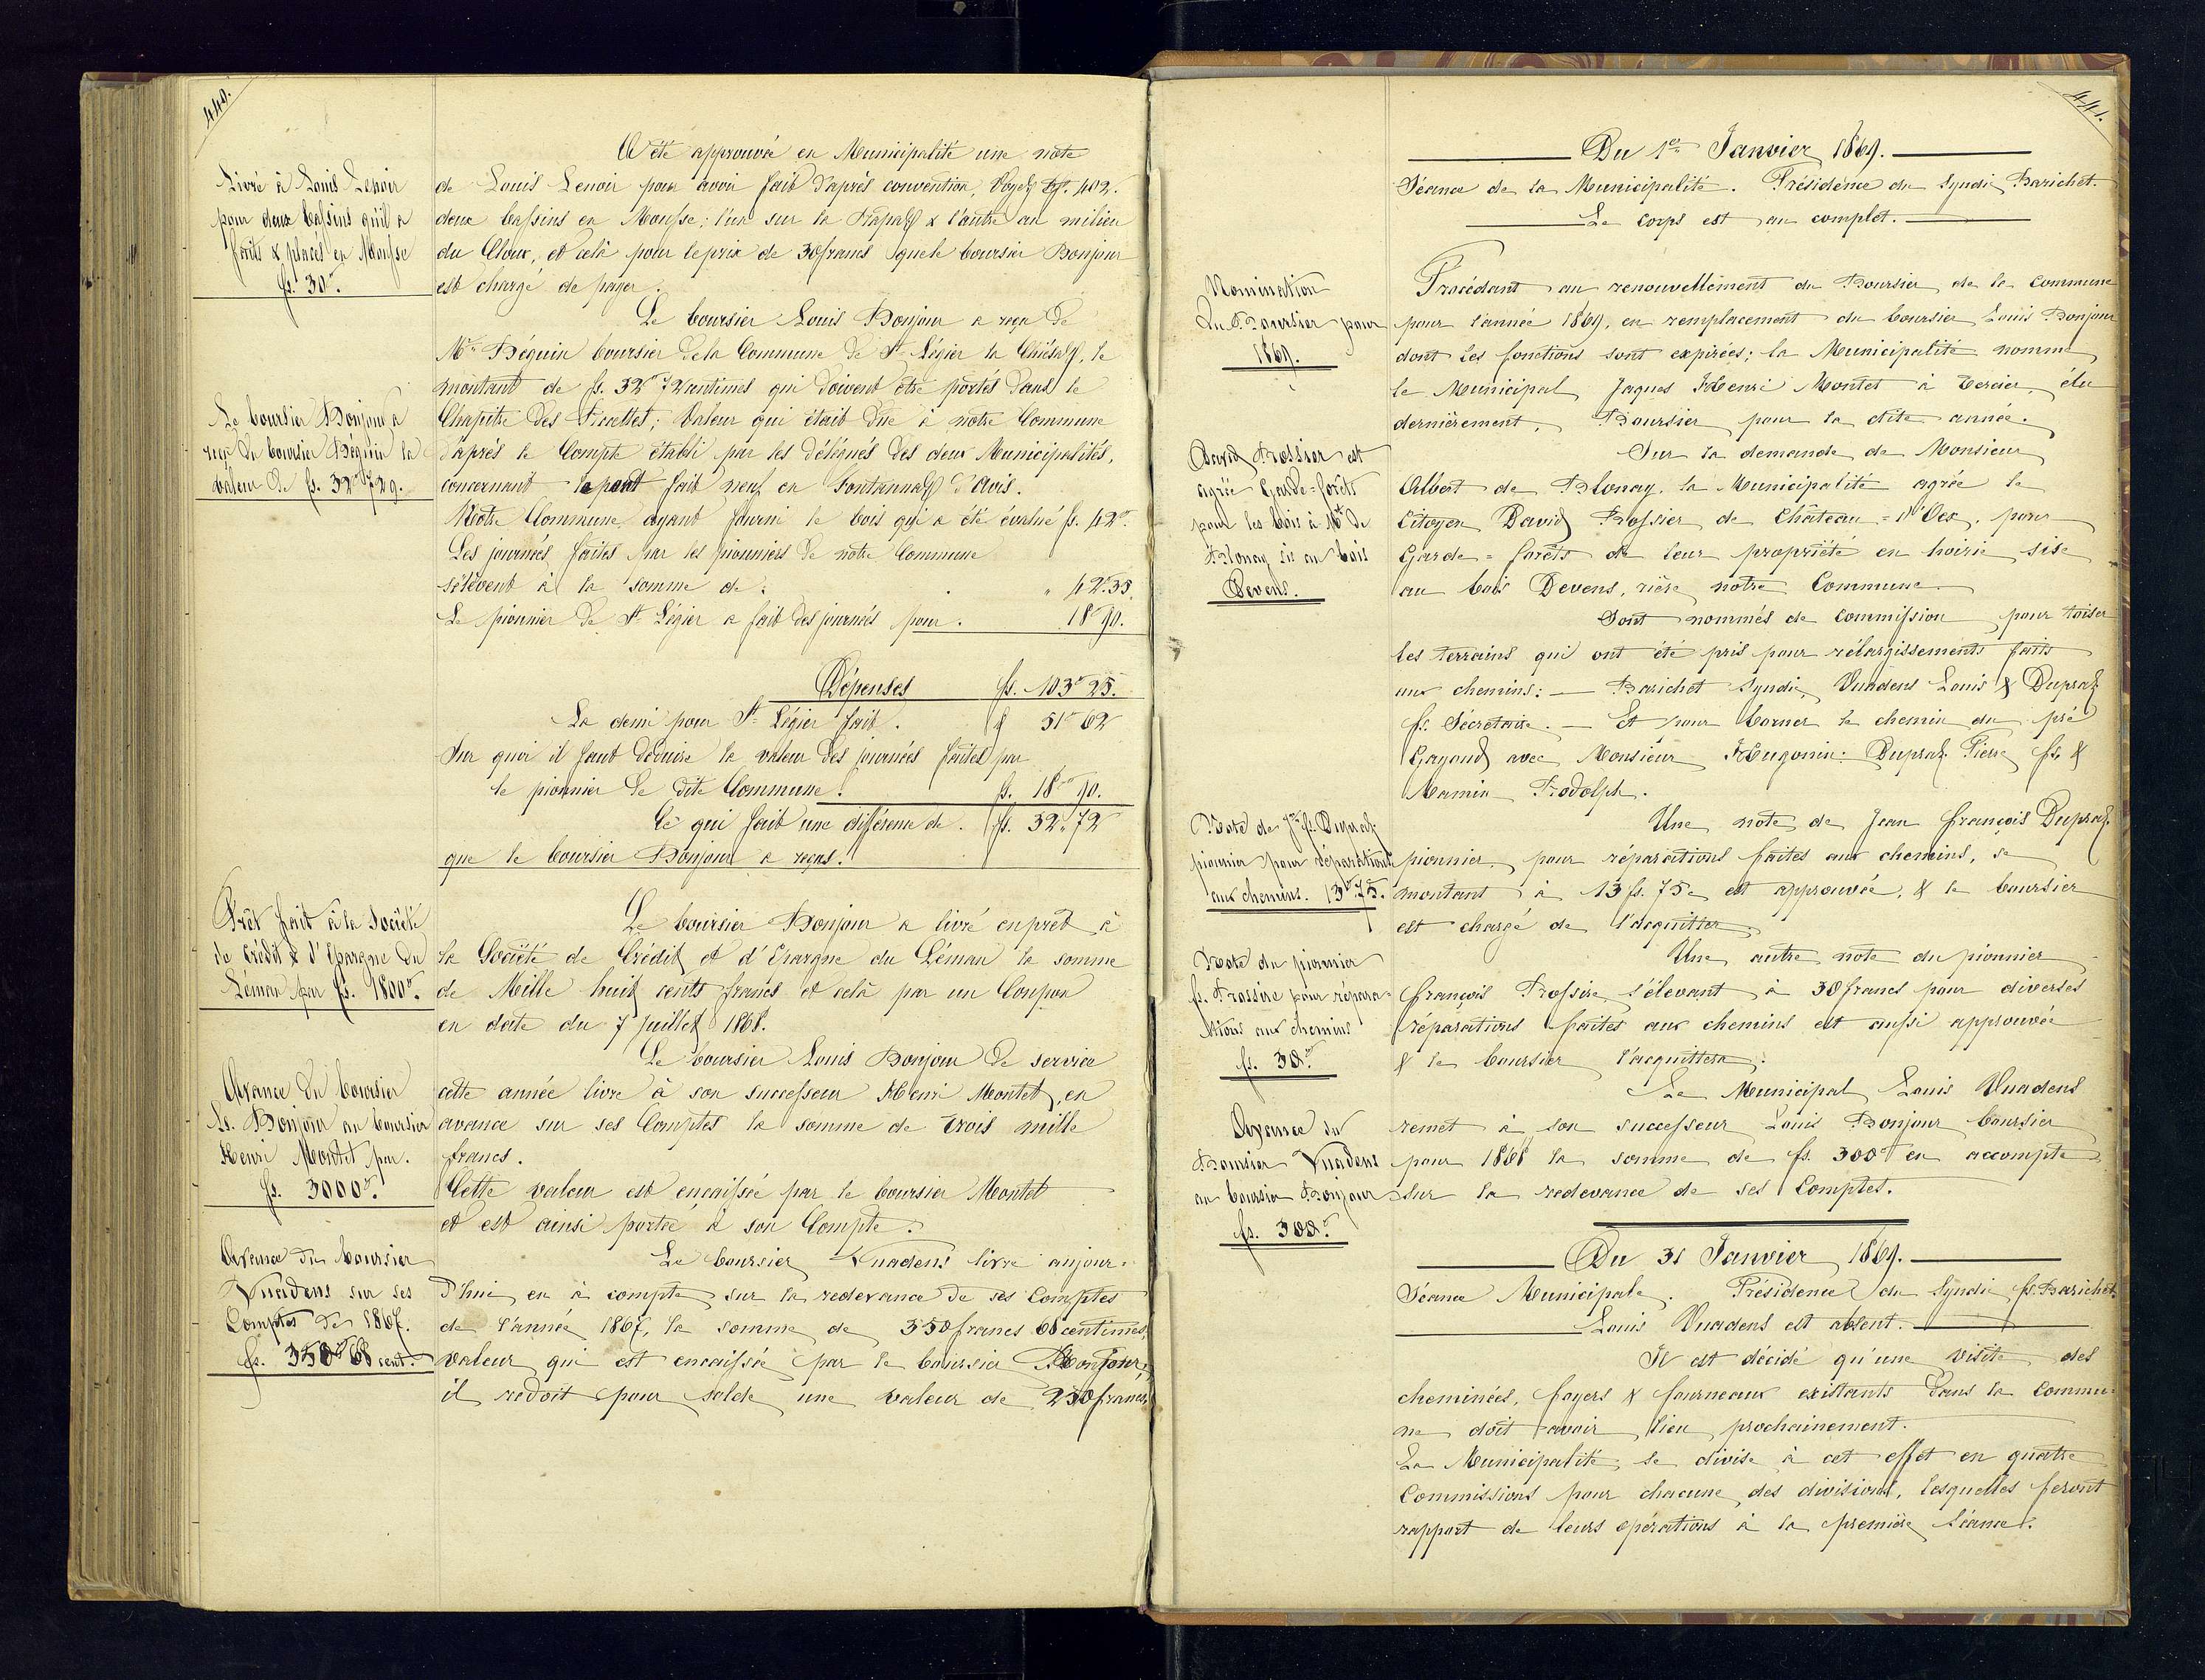 440.
Livré à Louis Lenoir
pour deux bassins qu'il a
faits & placés en Mousse
fs. 30"
A été approuvée en Municipalité une note
de Louis Lenoir pour avoir fait d'après convention, Voyez fo. 402.
deux bassins en Mousse; l'un sur la & l'autre au milieu
du Cloux, et celà pour le prix de 30 francs que le boursier Bonjour
est chargé de payer.
Le boursier Louis Bonjour a reçu de
Mr. Béguin boursier de la Commune de St. Légier la Chiésaz, le
montant de fs. 32" 72 centimes qui doivent être portés dans le
Chapitre des Recettes; valeur qui était due à notre Commune
d'après le Compte établi par les délégués des deux Municipalités,
concernant le pont fait neuf en Fontannaz d'Avis.
Le boursier Bonjour a
reçu du boursier Béguin la
valeur de fs. 32" 72 c.
Notre Commune ayant fourni le bois qui a été évalué fs. 42"
Les journées faites par les pionniers de notre Commune
s'élèvent à la somme de: " 42".35.
Le pionnier de St. Légier a fait des journées pour. 18" 90.
Dépenses fs. 103" 25.
La demi pour St. Légier fait. f 51" 62
Sur quoi il faut déduire la valeur des journées faites par
le pionnier de dite Commune. fs. 18" 90.
Ce qui fait une différence de. fs. 32" 72
que le boursier Bonjour a reçus.
Prêt fait à la Société
de Crédit & d'Epargne du
Léman par fs. 1800".
Le boursier Bonjour a livré en prêt à
la Société de Crédit et d'Epargne du Léman la somme
de Mille huit cents francs et celà par un Coupon
en date du 7 Juillet 1868.
Avance du boursier
Ls. Bonjour au boursier
Henri Montet par.
fs. 3000".
Le boursier Louis Bonjour de service
cette année livre à son successeur Henri Montet, en
avance sur ses Comptes la somme de trois mille
francs.
Cette valeur est encaissée par le boursier Montet
et est ainsi portée à son Compte.
Avance du boursier
Vuadens sur ses
Comptes de 1867.
fs. 350" 68 cent.
Le boursier Vuadens livre aujour-
d'hui en à compte sur la redevance de ses Comptes
de l'année 1867, la somme de 350 francs 68 centimes,
valeur qui est encaissée par le boursier Bonjour,
il redoit pour solde une valeur de 230 francs.
441.
Du 1er Janvier 1869.
Séance de la Municipalité. Présidence du Syndic Barichet.
Le corps est au complet.
Nomination
du Boursier pour
1869.
Procédant au renouvellement du Boursier de la Commune
pour l'année 1869, en remplacement du boursier Louis Bonjour
dont les fonctions sont expirées; la Municipalité nomme
le Municipal Jaques Henri Montet à Tercier, élu
dernièrement, Boursier pour la dite année.
David Rossier est
agréé Garde=forêts
pour les bois à Mr. de
Blonay sis au bois
Devens.
Sur la demande de Monsieur
Albert de Blonay, la Municipalité agrée le
Citoyen David Rossier de Château=d'Oex, pour
Garde=forêts de leur propriété en hoirie sise
au bois Devens, rière notre Commune.
Sont nommés de Commission pour toiser
les terrains qui ont été pris pour rélargissements faits
aux chemins: — Barichet Syndic, Vuadens Louis & Dupraz
fs. Secrétaire. — Et pour borner le chemin du pré
Gayoud avec Monsieur Hugonin: Dupraz Pierre fs. &
Mamin Rodolph.
Note de Jn. fs. Dupraz
pionnier pour réparations
aux chemins. 13".75.
Une note de Jean François Dupraz
pionnier, pour réparations faites aux chemins, se
montant à 13 fs. 75 c est approuvée, & le boursier
est chargé de l'acquitter.
Note du pionnier
fs. Rossire pour répara=
tions aux chemins
fs. 30".
Une autre note du pionnier
François Rossire, s'élevant à 30 francs pour diverses
réparations faites aux chemins est aussi approuvée
& le boursier l'acquittera.
Avance du
Boursier Vuadens
au boursier Bonjour
fs. 300".
Le Municipal Louis Vuadens
remet à son successeur Louis Bonjour boursier
pour 1868 la somme de fs. 300" en accompte
sur la redevance de ses Comptes.
Du 31 Janvier 1869.
Séance Municipale. Présidence du Syndic fs. Barichet.
Louis Vuadens est absent.
Il est décidé qu'une visite des
cheminées, foyers & fourneaux existants dans la Commu-
ne doit avoir lieu prochainement.
La Municipalité se divise à cet effet en quatre
Commissions pour chacune des divisions, lesquelles feront
rapport de leurs opérations à la première séance.